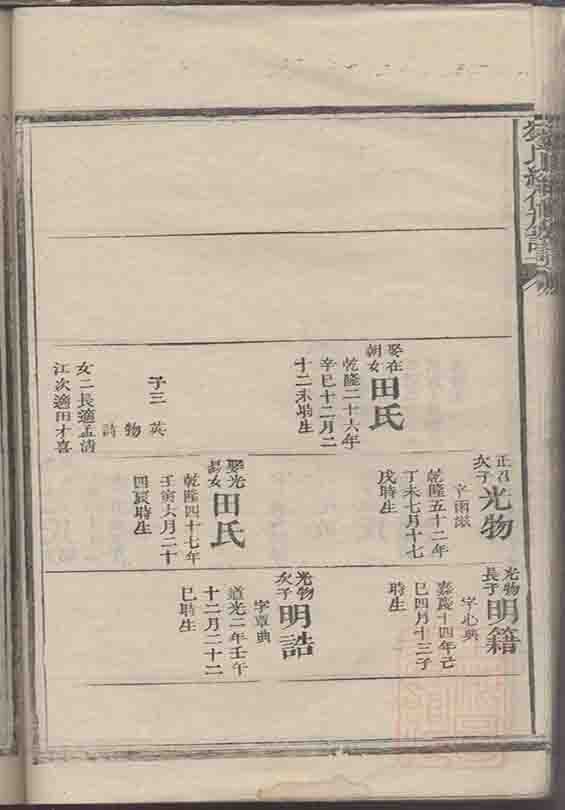 娶在
朝女
田氏
乾隆二十六年
辛巳十二月二
十二未時生
子三 英
物
詩
女二長適孟清
江次適田才喜
正召
次子
光物
字雨滋
乾隆五十二年
丁未七月十七
戌時生
娶光
女
田氏
乾隆四十七年
壬寅六月二十
四辰時生
光物
長子
明籍
字心典
嘉慶十四年己
巳四月十三子
時生
光物
次子
明誥
字章典
道光二年壬午
十二月二十二
巳時生